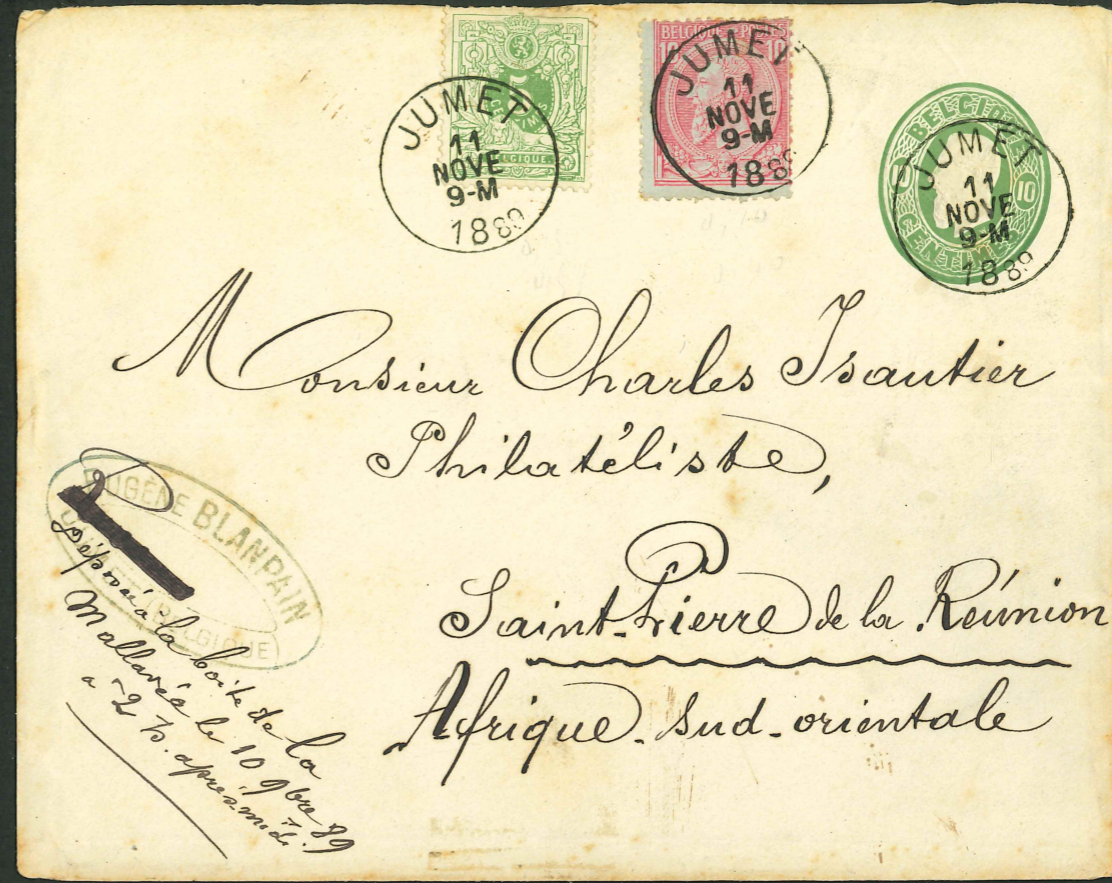 5
BELGIQUE
JUMET
11
NOVE
9-M
1889
BELGIQUE POSTES
10
JUMET
11
NOVE
9-M
1889
BELGIQUE
10
CENTIMES
JUMET
11
NOVE
9-M
1889
Monsieur Charles Isautier
Philatéliste,
Saint-Pierre de la Réunion
Afrique-sud-orientale
EUGÈNE BLANPAIN
(BELGIQUE)
à la boîte de la
Mallavéé le 10 9bre 89
à 2 h. après-midi.